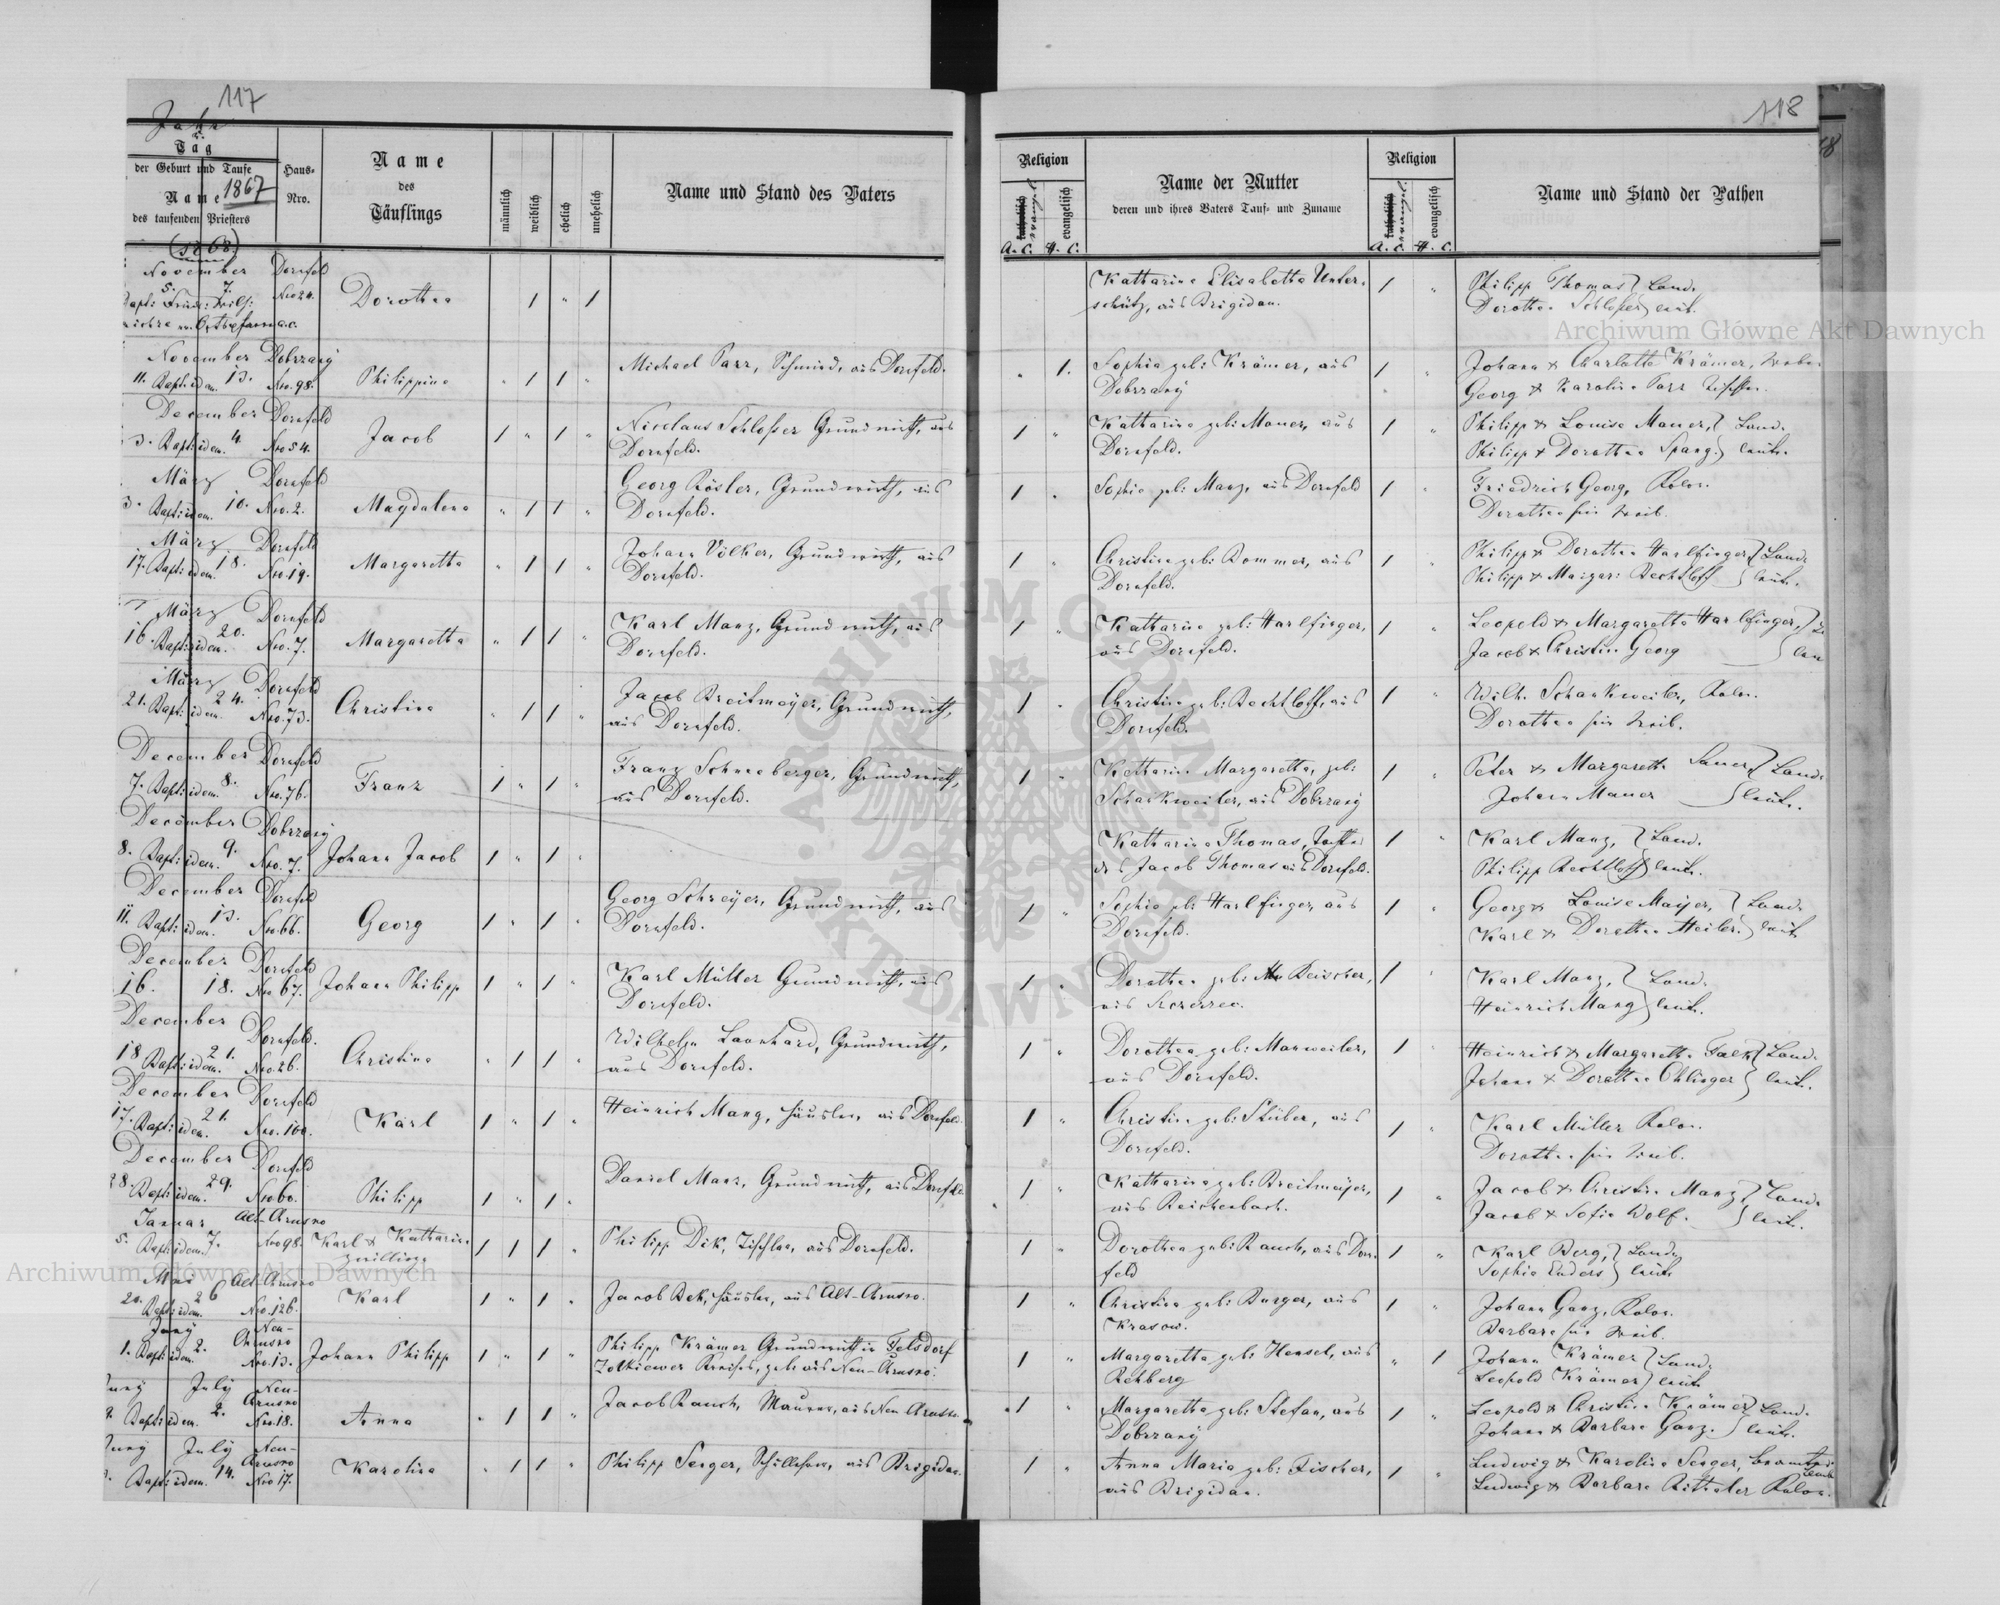 117
Jahr
u.
Tag
der Geburt und Taufe
Name 1867
des taufenden Priesters
(1868)
Haus-
Nro.
Name
des
Täuflings
männlich
weiblich
ehelich
unehelich
Name und Stand des Vaters
November Dornfeld
5. 7. Nro 24.
Dorothea 1 " 1
November Dobrzany
11. Bapt. idem. 13. Nro. 98. Philippina " 1 1 "
Michael Parr, Schmied, aus Dornfeld.
December Dornfeld
3. Bapt. idem. 4. Nro 54. Jacob 1 " 1 "
Nicolaus Schloßer Grundwirth, aus
Dornfeld.
März Dornfeld
3. Bapt. idem. 10. Nro. 2. Magdalena " 1 1 "
Georg Rösler, Grundwirth, aus
Dornfeld.
März Dornfeld
17. Bapt. idem. 18. Nro. 19. Margaretha " 1 1 "
Johann Völker, Grundwirth, aus
Dornfeld.
März Dornfeld
16. Bapt. idem. 20. Nro. 7. Margaretha " 1 1 "
Karl Manz, Grundwirth, aus
Dornfeld.
März Dornfeld
21. Bapt. idem. 24. Nro. 73. Christina " 1 1 "
Jacob Breitmeyer, Grundwirth,
aus Dornfeld.
December Dornfeld
7. Bapt. idem. 8. Nro. 76. Franz 1 " 1 "
Franz Schneeberger, Grundwirth,
aus Dornfeld.
December Dobrzany
8. Bapt. idem. 9. Nro. 7. Johann Jacob 1 " 1 "
December Dornfeld
11. Bapt. idem. 13. Nro. 66. Georg 1 " 1 "
Georg Schreyer, Grundwirth, aus
Dornfeld.
December Dornfeld
16. 18. Nro 67. Johann Philipp 1 " 1 "
Karl Müller Grundwirth, aus
Dornfeld.
December Dornfeld.
18 Bapt. idem. 21. Nro. 26. Christina " 1 1 "
Wilhelm Laanhard, Grundwirth,
aus Dornfeld.
December Dornfeld
17. Bapt. idem. 21. Nro. 100. Karl 1 " 1 "
Heinrich Manz, Häusler, aus Dornfeld.
December Dornfeld
28. Bapt. idem. 29. Nro 60. Philipp 1 " 1 "
Daniel Manz, Grundwirth, aus Dornfeld.
Januar Alt-Chrusno
5. Bapt. idem. 7. Nro 98. Karl & Katharina 1 1 1 "
Zwillinge
Philipp Dik, Tischler, aus Dornfeld.
Mai Alt-Chrusno
20. Bapt. idem. 26 Nro. 126. Karl 1 " 1 "
Jacob Bek, Häusler, aus Alt-Chrusno.
Juny Neu-
Chrusno
1. Bapt. idem. 2. Nro. 13. Johann Philipp 1 " 1 "
Philipp Krämer Grundwirth in Felsdorf
Zolkiewer Kreises, geb. aus Neu-Chrusno.
Juny July Neu-
Chrusno
Bapt. idem. 2. Nro. 18. Anna " 1 1 "
Jacob Rauch, Maurer, aus Neu Chrusno.
Juny July Neu-
Chrusno
Bapt. idem. 14. Nro 17. Karolina " 1 1 "
Philipp Senger, Schullehrer, aus Brigidau.
118
Religion
katholisch
evangel.
evangelisch
A. C. H. C.
Name der Mutter
deren und ihres Vaters Tauf- und Zuname
Religion
katholisch
evangel.
evangelisch
A. C. H. C.
Name und Stand der Pathen
Katharina Elisabetha Unter-
schütz, aus Brigidau.
1 "
Philipp Thomas } Land-
Dorothea Schloßer } leute.
" 1.
Sophia geb: Krämer, aus
Dobrzany
1 "
Johann & Charlotte Krämer,
Georg & Karolina Parr
1 "
Katharina geb: Mauer, aus
Dornfeld.
1 "
Philipp & Louise Mauer, } Land-
Philipp & Dorothea Spang. } leute.
1 "
Sophia geb: Manz, aus Dornfeld
1 "
Friedrich Georg, Kolon.
Dorothea sein Weib.
1 "
Christina geb: Bommer, aus
Dornfeld.
1 "
Philipp & Dorothea Harlfinger } Land-
Philipp & Margar: Bechtloff } leute.
1 "
Katharina geb: Harlfinger,
aus Dornfeld.
1 "
Leopold & Margaretha Harlfinger,
Jacob & Christina Georg
1 "
Christina geb: Bechtloff, aus
Dornfeld.
1 "
Wilh. Schankweiler, Kolon.
Dorothea sein Weib.
1 "
Katharina Margaretha, geb:
Schankweiler, aus Dobrzany
1 "
Peter & Margaretha Sauer, } Land-
Johann Mauer } leute.
Katharina Thomas, Tochter
des Jacob Thomas aus Dornfeld.
1 "
Karl Manz, } Land-
Philipp Bechtloff } leute.
1 "
Sophia geb: Harlfinger, aus
Dornfeld.
1 "
Georg & Louise Mayer, } Land-
Karl & Dorothea Heiler. } leute
1 "
Dorothea geb: Reischer,
aus Szczerzec.
1 "
Karl Manz, } Land-
Heinrich Manz } leute.
1 "
Dorothea geb: Manweiler,
aus Dornfeld.
1 "
Heinrich & Margaretha Falk } Land-
Johann & Dorothea Ohlinger } leute.
1 "
Christina geb: Stüber, aus
Dornfeld.
1 "
Karl Müller Kolon.
Dorothea sein Weib.
1 "
Katharina geb: Breitmeyer,
aus Reichenbach.
1 "
Jacob & Christina Manz } Land-
Jacob & Sofia Wolf. } leute.
1 "
Dorothea geb: Rauch, aus Dorn-
feld
1 "
Karl Berg, } Land-
Sophia Enders } leute
1 "
Christina geb: Burger, aus
Krasow.
1 "
Johann Ganz, Kolon.
Barbara sein Weib.
1 "
Margaretha geb: Hensel, aus
Rehberg
" 1
Johann Krämer } Land-
Leopold Krämer } leute
1 "
Margaretha geb: Stefan, aus
Dobrzany
1 "
Leopold & Christina Krämer } Land-
Johann & Barbara Ganz. } leute.
1 "
Anna Maria geb: Fischer,
aus Brigidau.
1 "
Ludwig & Karolina Senger,
Ludwig & Barbara Kolon.
Archiwum Główne Akt Dawnych
Archiwum Główne Akt Dawnych
ARCHIWUM GŁÓWNE AKT DAWNYCH